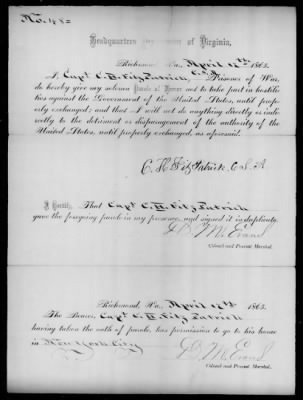 Headquarters Department of Virginia,
Richmond, Va., April 17th, 1865.
I, Capt. C. H. Fitzpatrick, Prisoner of War,
do hereby give my solemn Parole of Honor not to take part in hostili-
ties against the Government of the United States, until prop-
erly exchanged; and that I will not do anything directly or indi-
rectly to the detriment or disparagement of the authority of the
United States, until properly exchanged, as aforesaid.
C. H. Fitzpatrick, C.S.A
I Certify, That Capt C. H. Fitzpatrick
gave the foregoing parole in my presence, and signed it in duplicate.
Evans
Colonel and Provost Marshal.
Richmond, Va., April 17th 1865.
The Bearer, Capt. C. H. Fitzpatrick
having taken the oath of parole, has permission to go to his home
in New York City
Evans
Colonel and Provost Marshal.